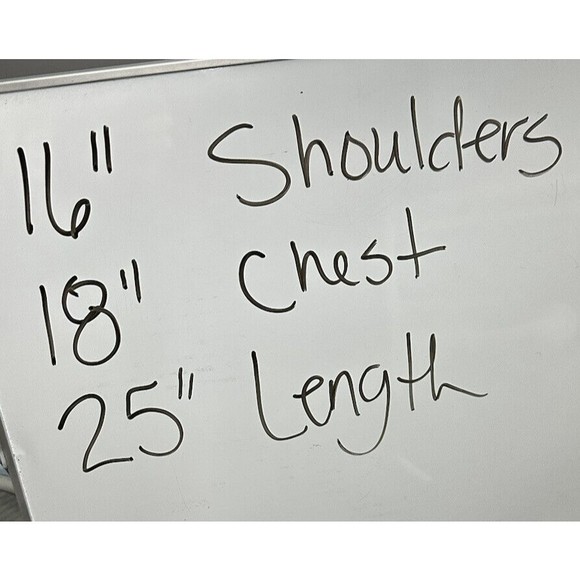 16" Shoulders
18" Chest
25" Length